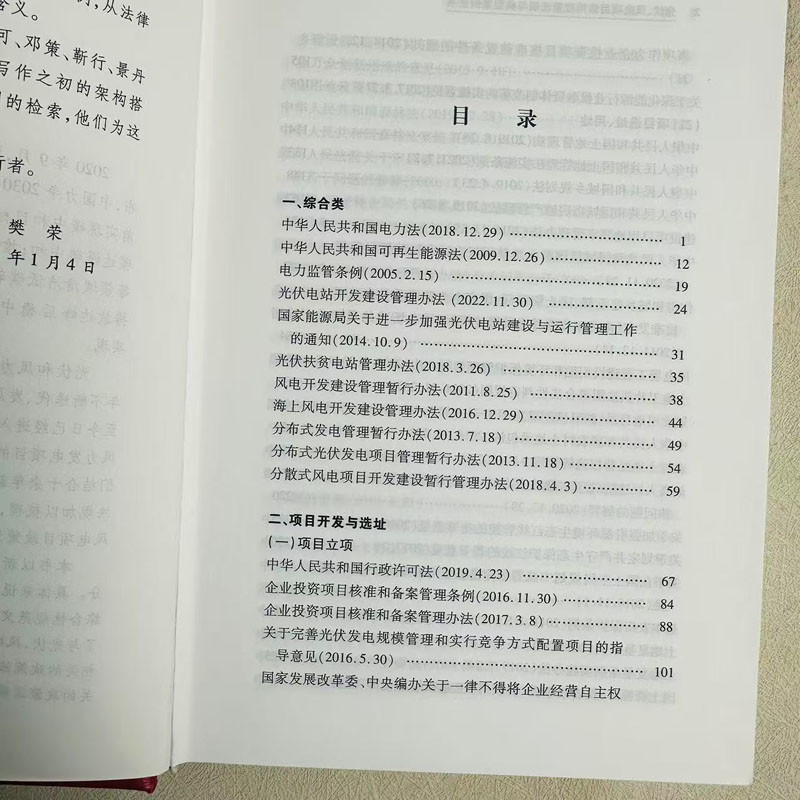 ，从法律
含义。
可、邓策、靳行、景丹
写作之初的架构搭
的检索，他们为这
行者。
樊 荣
年1月4日
目 录
一、综合类
中华人民共和国电力法(2018.12.29) 1
中华人民共和国可再生能源法(2009.12.26) 12
电力监管条例(2005.2.15) 19
光伏电站开发建设管理办法 (2022.11.30) 24
国家能源局关于进一步加强光伏电站建设与运行管理工作
的通知(2014.10.9) 31
光伏扶贫电站管理办法(2018.3.26) 35
风电开发建设管理暂行办法(2011.8.25) 38
海上风电开发建设管理办法(2016.12.29) 44
分布式发电管理暂行办法(2013.7.18) 49
分布式光伏发电项目管理暂行办法(2013.11.18) 54
分散式风电项目开发建设暂行管理办法(2018.4.3) 59
二、项目开发与选址
(一)项目立项
中华人民共和国行政许可法(2019.4.23) 67
企业投资项目核准和备案管理条例(2016.11.30) 84
企业投资项目核准和备案管理办法(2017.3.8) 88
关于完善光伏发电规模管理和实行竞争方式配置项目的指
导意见(2016.5.30) 101
国家发展改革委、中央编办关于一律不得将企业经营自主权